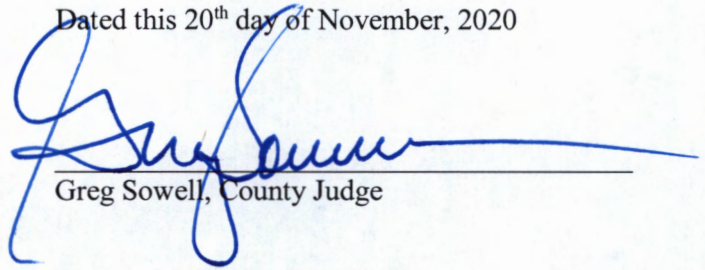 Dated this 20th day of November, 2020
Greg Sowell
Greg Sowell, County Judge